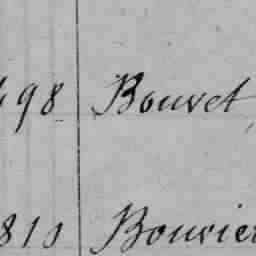 498 Bouvet
810 Bouvier